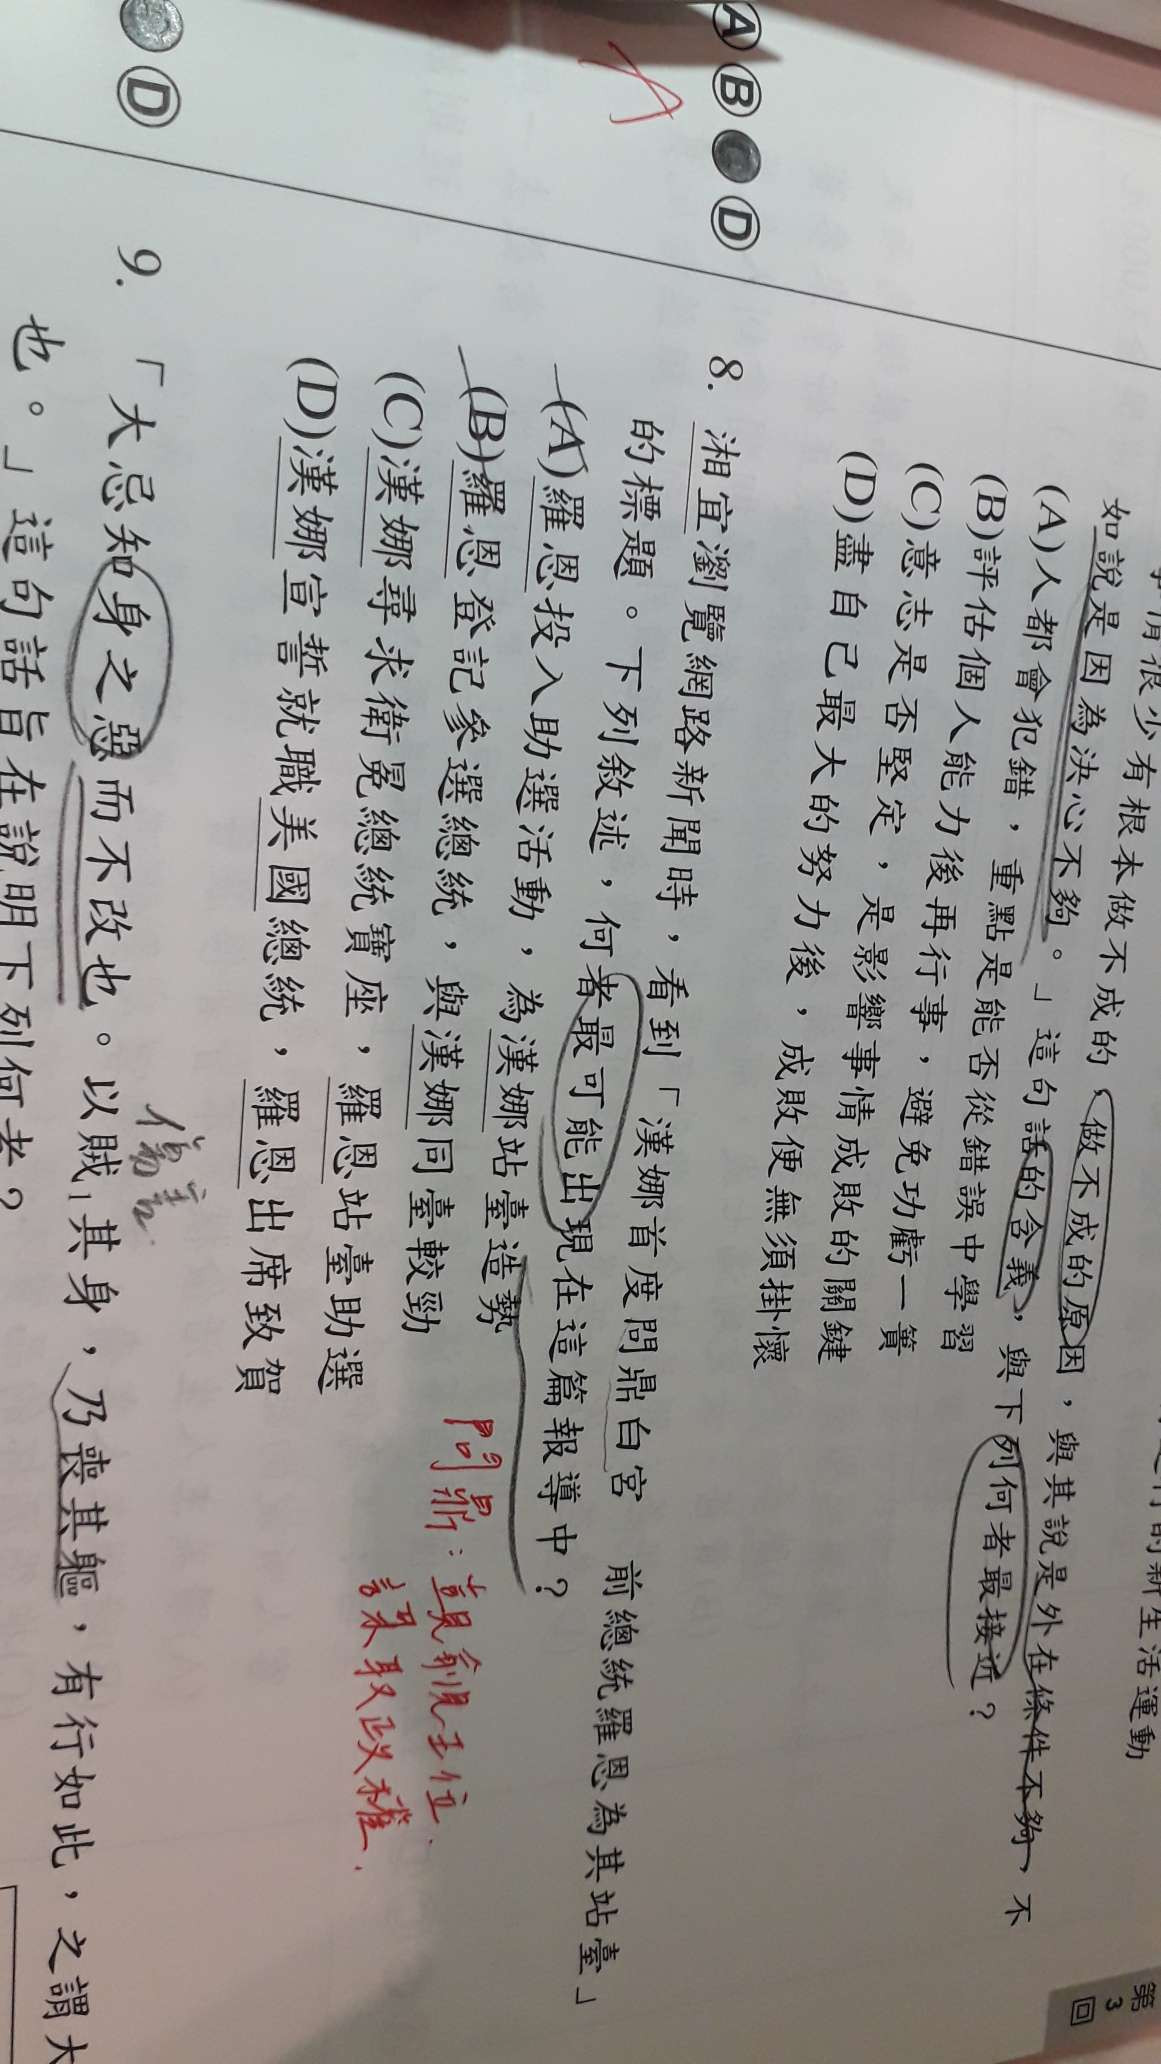 第3回
的新生活運動
情很少有根本做不成的,做不成的原因,與其說是外在條件不夠,不
如說是因為決心不夠。」這句話的含義,與下列何者最接近?
(A)人都會犯錯,重點是能否從錯誤中學習
(B)評估個人能力後再行事,避免功虧一簣
(C)意志是否堅定,是影響事情成敗的關鍵
(D)盡自己最大的努力後,成敗便無須掛懷
Ⓐ Ⓑ Ⓓ
8. 湘宜瀏覽網路新聞時,看到「漢娜首度問鼎白宮 前總統羅恩為其站臺」
的標題。下列敘述,何者最可能出現在這篇報導中?
(A)羅恩投入助選活動,為漢娜站臺造勢
(B)羅恩登記參選總統,與漢娜同臺較勁
(C)漢娜尋求衛冕總統寶座,羅恩站臺助選
(D)漢娜宣誓就職美國總統,羅恩出席致賀
問鼎:意見窺視王位.
謀取政權.
Ⓓ
9. 「大忌知身之惡而不改也。以賊其身,乃喪其軀,有行如此,之謂大
傷害
也。」這句話旨在說明下列何者?